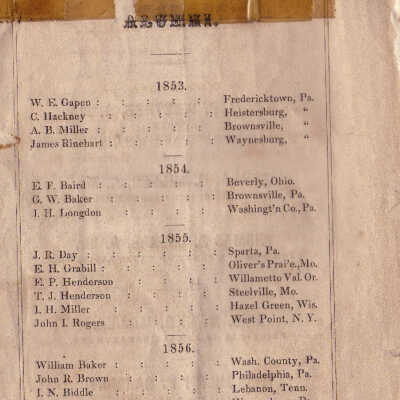 ALUMNI.
1853.
W. E. Gapen : : : : : Fredericktown, Pa.
C. Hackney : : : : : Heistersburg, "
A. B. Miller : : : : : Brownsville, "
James Rinehart : : : : Waynesburg, "
1854.
E. F. Baird : : : : : Beverly, Ohio.
G. W. Baker : : : : Brownsville, Pa.
I. H. Longdon : : : : Washingt'n Co., Pa.
1855.
J. R. Day : : : : : Sparta, Pa.
E. H. Grabill : : : : : Oliver's Prai'e., Mo.
E. P. Henderson : : : : Willametto Val. Or.
T. J. Henderson : : : : Steelville, Mo.
I. H. Miller : : : : : Hazel Green, Wis.
John I. Rogers : : : : West Point, N. Y.
1856.
William Baker : : : : Wash. County, Pa.
John R. Brown : : : : Philadelphia, Pa.
I. N. Biddle : : : : Lebanon, Tenn.